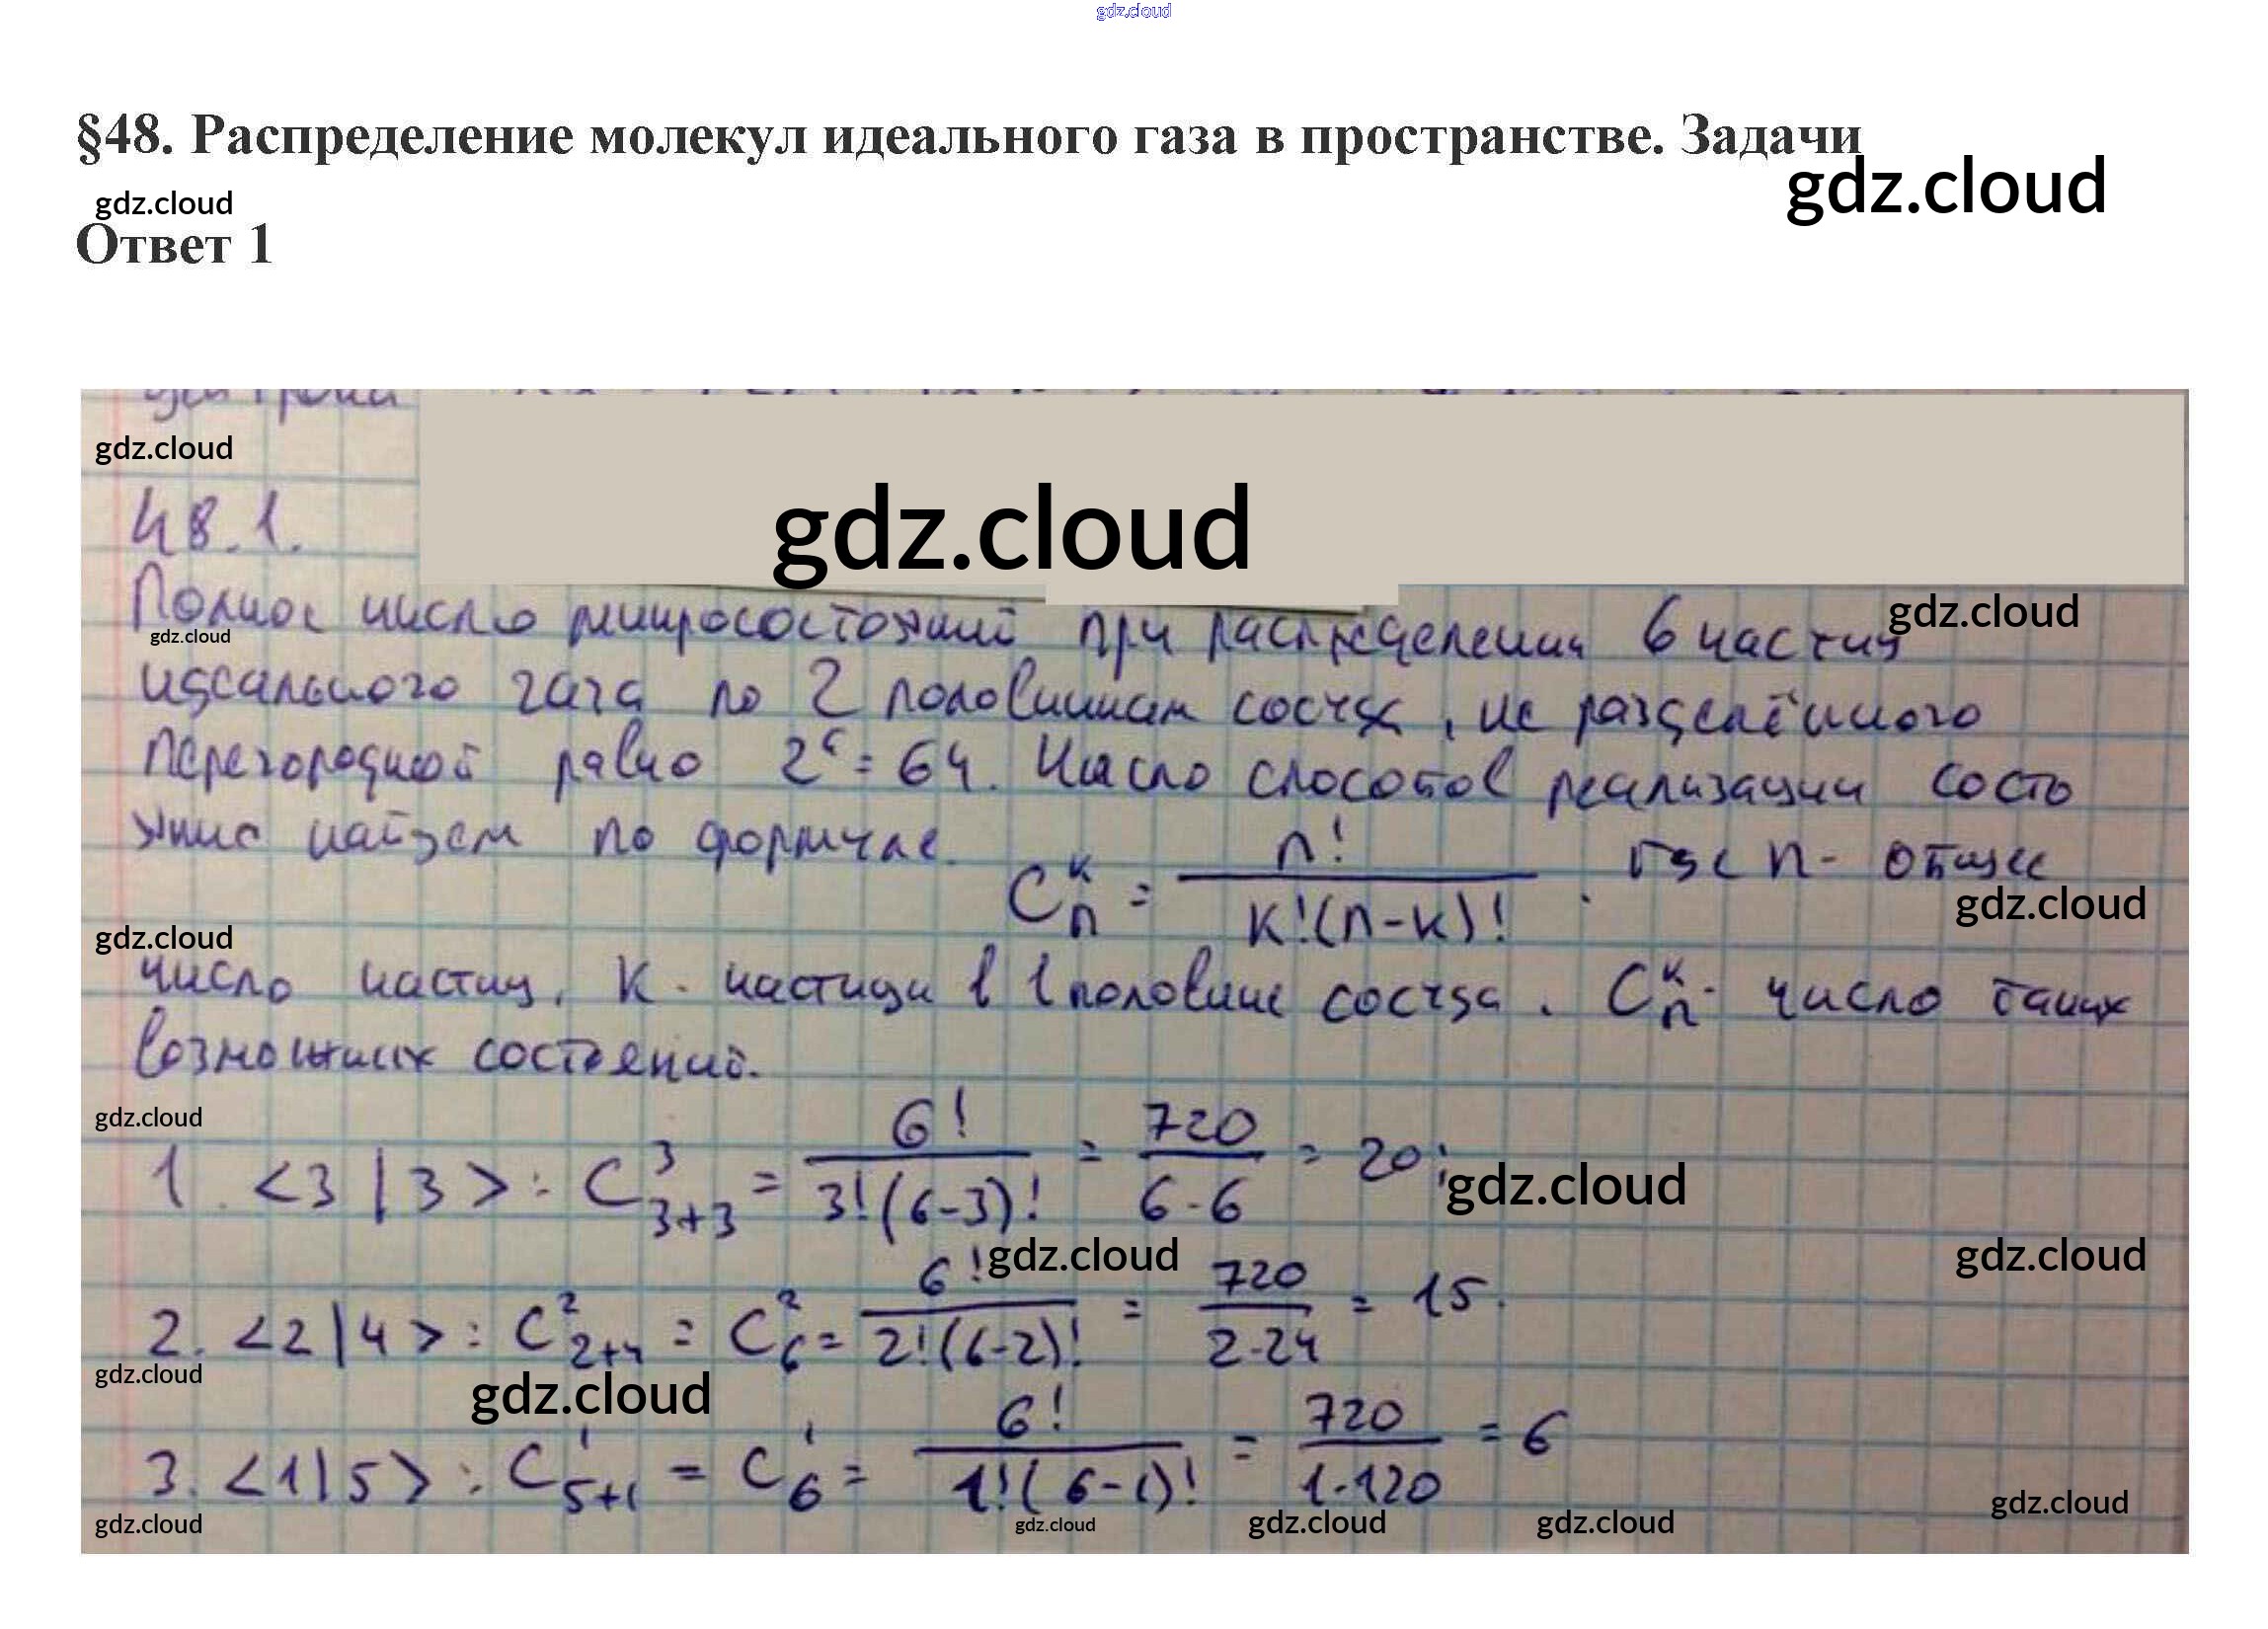 gdz.cloud
§48. Распределение молекул идеального газа в пространстве. Задачи
gdz.cloud
gdz.cloud
Ответ 1
gdz.cloud
48.1.
gdz.cloud
Полное число микросостояний при распределении 6 частиц
gdz.cloud
gdz.cloud
идеального газа по 2 половинам сосуда, не разделённого
перегородкой равно 2⁶ = 64. Число способов реализации состо
яние найдем по формуле.
C_n^k = n! / k!(n-k)! . где n - общее
gdz.cloud
gdz.cloud
число частиц, k - частицы в 1 половине сосуда. C_n^k - число таких
возможных состояний.
gdz.cloud
1. <3|3> : C_{3+3}^3 = 6! / 3!(6-3)! = 720 / 6·6 = 20;
gdz.cloud
gdz.cloud
gdz.cloud
2. <2|4> : C_{2+4}^2 = C_6^2 = 6! / 2!(6-2)! = 720 / 2·24 = 15.
gdz.cloud
gdz.cloud
3. <1|5> : C_{5+1}^1 = C_6^1 = 6! / 1!(6-1)! = 720 / 1·120 = 6
gdz.cloud
gdz.cloud
gdz.cloud
gdz.cloud
gdz.cloud